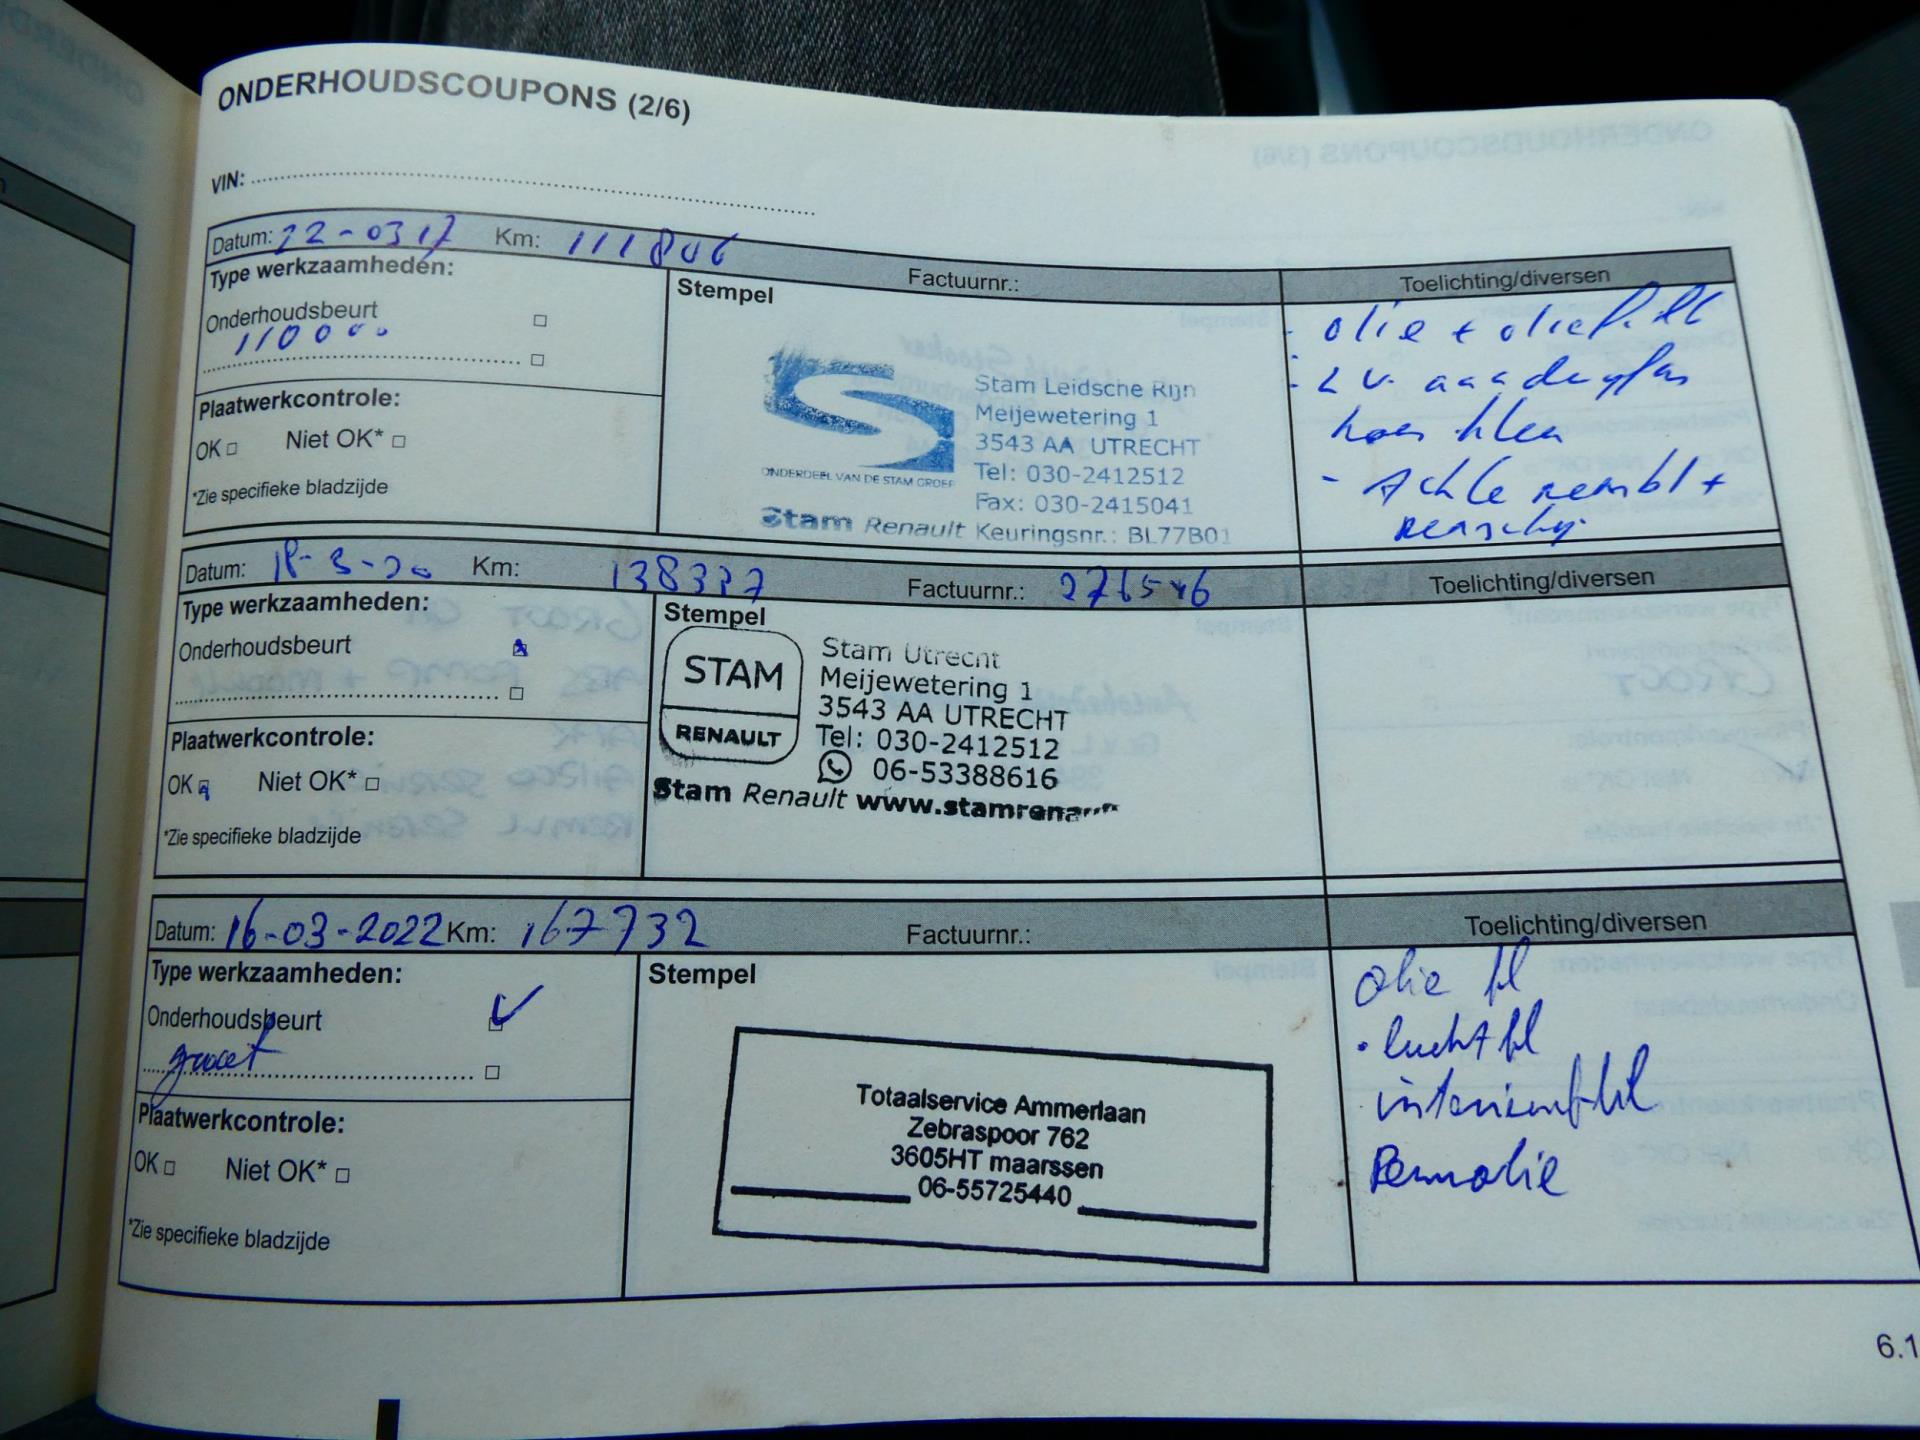 ONDERHOUDSCOUPONS (2/6)
VIN:
Datum: 22-0317 Km: 111806 Factuurnr.: Toelichting/diversen
Type werkzaamheden:
Onderhoudsbeurt
110000
Plaatwerkcontrole:
OK Niet OK*
*Zie specifieke bladzijde
Stempel
Stam Leidsche Rijn
Meijewetering 1
3543 AA UTRECHT
Tel: 030-2412512
Fax: 030-2415041
ONDERDEEL VAN DE STAM GROEP
Stam Renault Keuringsnr.: BL77B01
- olie + oliefilt
- LV. aandrijfas
hoes
- Achte remбl +
remschij
Datum: 18-3-20 Km: 138337 Factuurnr.: 276546 Toelichting/diversen
Type werkzaamheden:
Onderhoudsbeurt
Plaatwerkcontrole:
OK Niet OK*
*Zie specifieke bladzijde
Stempel
STAM
RENAULT
Stam Utrecht
Meijewetering 1
3543 AA UTRECHT
Tel: 030-2412512
06-53388616
Stam Renault
Datum: 16-03-2022 Km: 167732 Factuurnr.: Toelichting/diversen
Type werkzaamheden:
Onderhoudsbeurt
groot
Plaatwerkcontrole:
OK Niet OK*
*Zie specifieke bladzijde
Stempel
Totaalservice Ammerlaan
Zebraspoor 762
3605HT maarssen
06-55725440
olie fil
• lucht fil
interieurfilt
Remolie
6.1